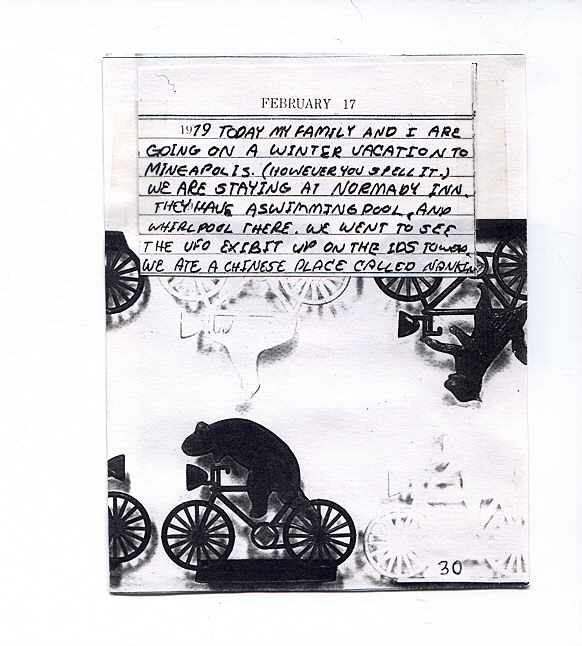 FEBRUARY 17
1979 TODAY MY FAMILY AND I ARE
GOING ON A WINTER VACATION TO
MINEAPOLIS. (HOWEVER YOU SPELL IT.)
WE ARE STAYING AT NORMADY INN.
THEY HAVE A SWIMMING POOL, AND
WHIRLPOOL THERE. WE WENT TO SEE
THE UFO EXIBIT UP ON THE IDS TOWER.
WE ATE A CHINESE PLACE CALLED NANKIN
30